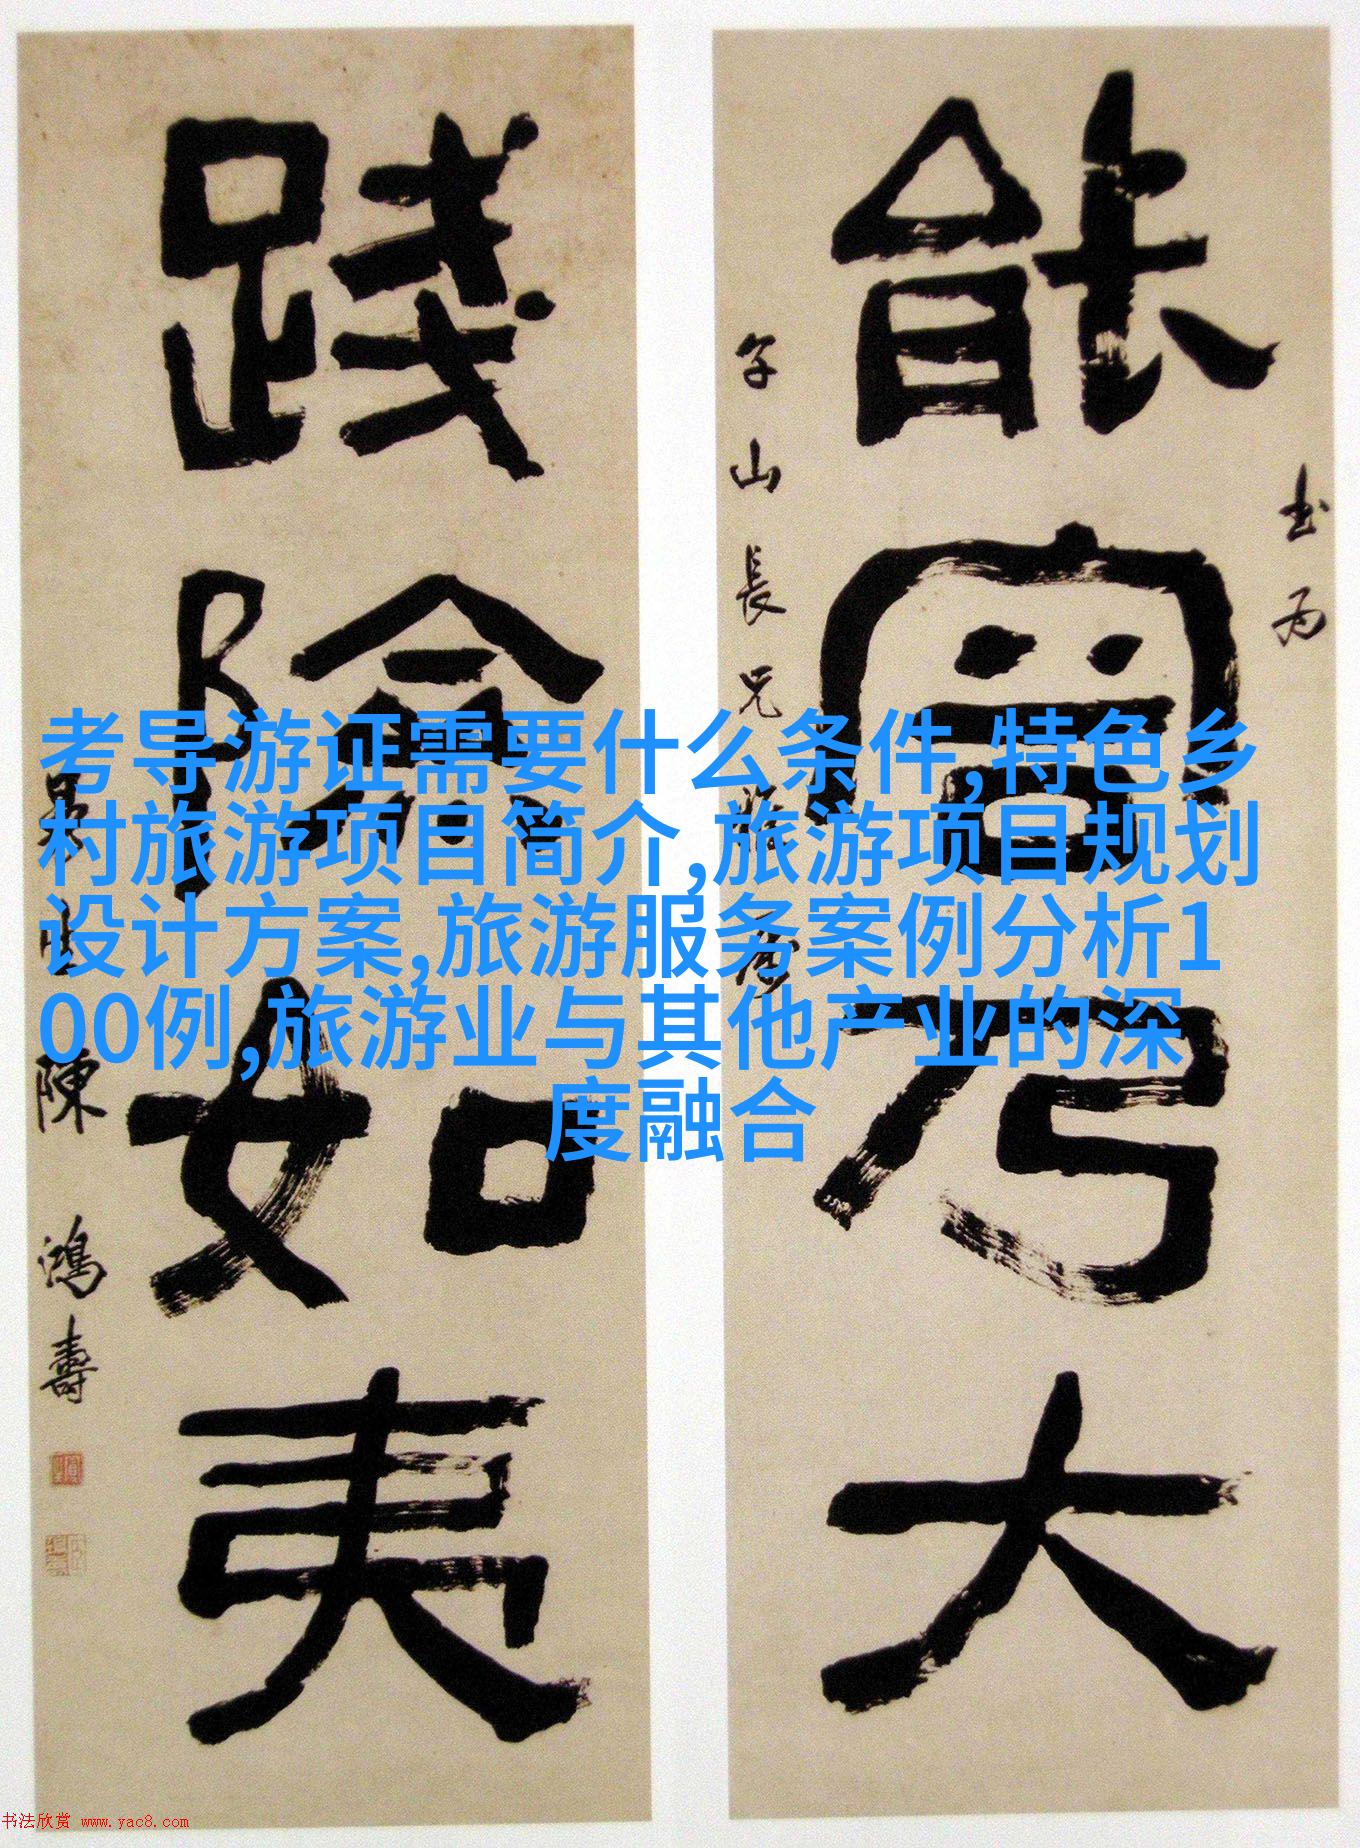 考导游证需要什么条件,特色乡
村旅游项目简介,旅游项目规划
设计方案,旅游服务案例分析1
00例,旅游业与其他产业的深
度融合
能富乃大
书为
子山长兄
践險如夷
陳鴻壽
书法欣赏 www.yac8.com